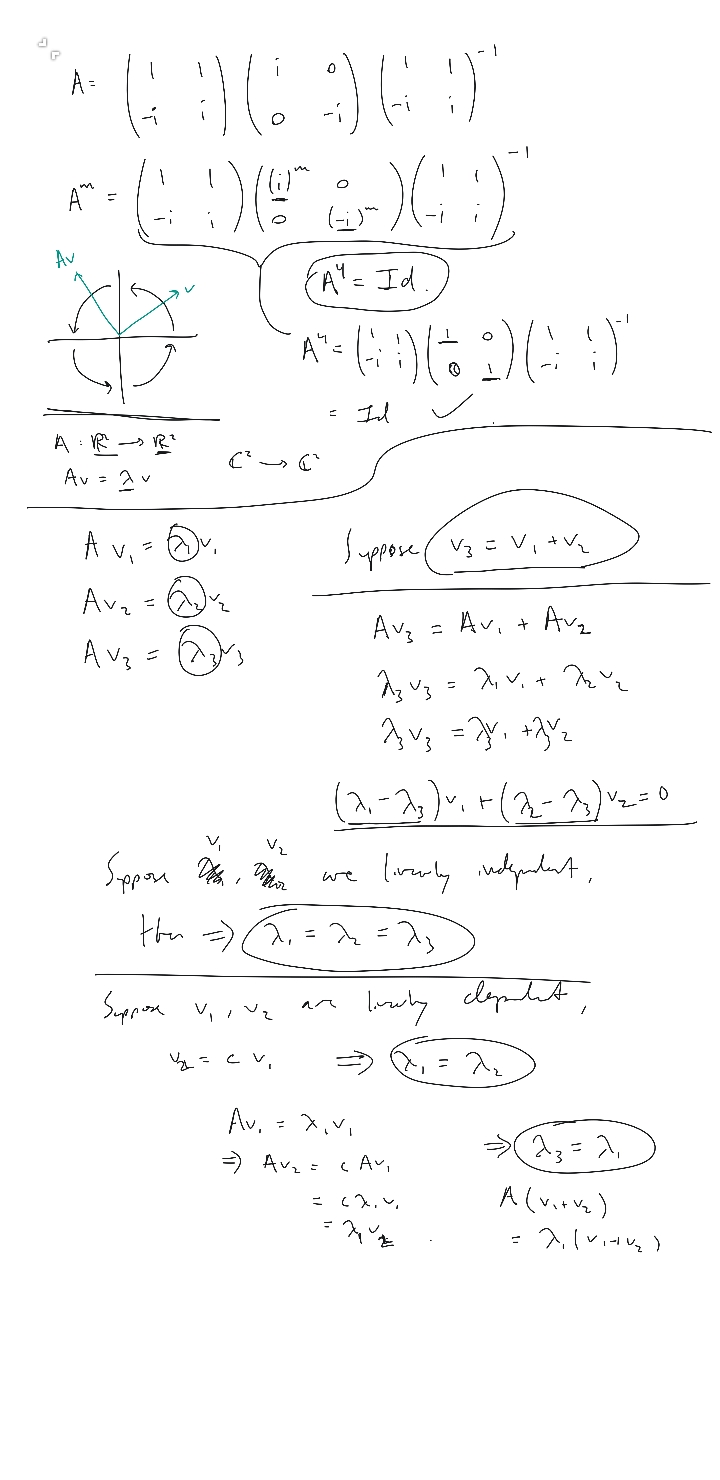 A = ( 1 1 ; -i i ) ( i 0 ; 0 -i ) ( 1 1 ; -i i )^-1
A^m = ( 1 1 ; -i i ) ( (i)^m 0 ; 0 (-i)^m ) ( 1 1 ; -i i )^-1
Av
v
A^4 = Id.
A^4 = ( 1 1 ; -i i ) ( 1 0 ; 0 1 ) ( 1 1 ; -i i )^-1
= Id ✓
A : ℝ² → ℝ²
Av = λv
ℂ² → ℂ²
A v₁ = λ₁v₁
A v₂ = λ₂v₂
A v₃ = λ₃v₃
Suppose v₃ = v₁ + v₂
Av₃ = Av₁ + Av₂
λ₃v₃ = λ₁v₁ + λ₂v₂
λ₃v₃ = λ₃v₁ + λ₃v₂
(λ₁ - λ₃)v₁ + (λ₂ - λ₃)v₂ = 0
Suppose v₁, v₂ are linearly independent,
then ⇒ λ₁ = λ₂ = λ₃
Suppose v₁, v₂ are linearly dependent,
v₂ = c v₁ ⇒ λ₁ = λ₂
Av₁ = λ₁v₁
⇒ Av₂ = c Av₁
= cλ₁v₁
= λ₁v₂
⇒ λ₃ = λ₁
A(v₁+v₂)
= λ₁(v₁+v₂)